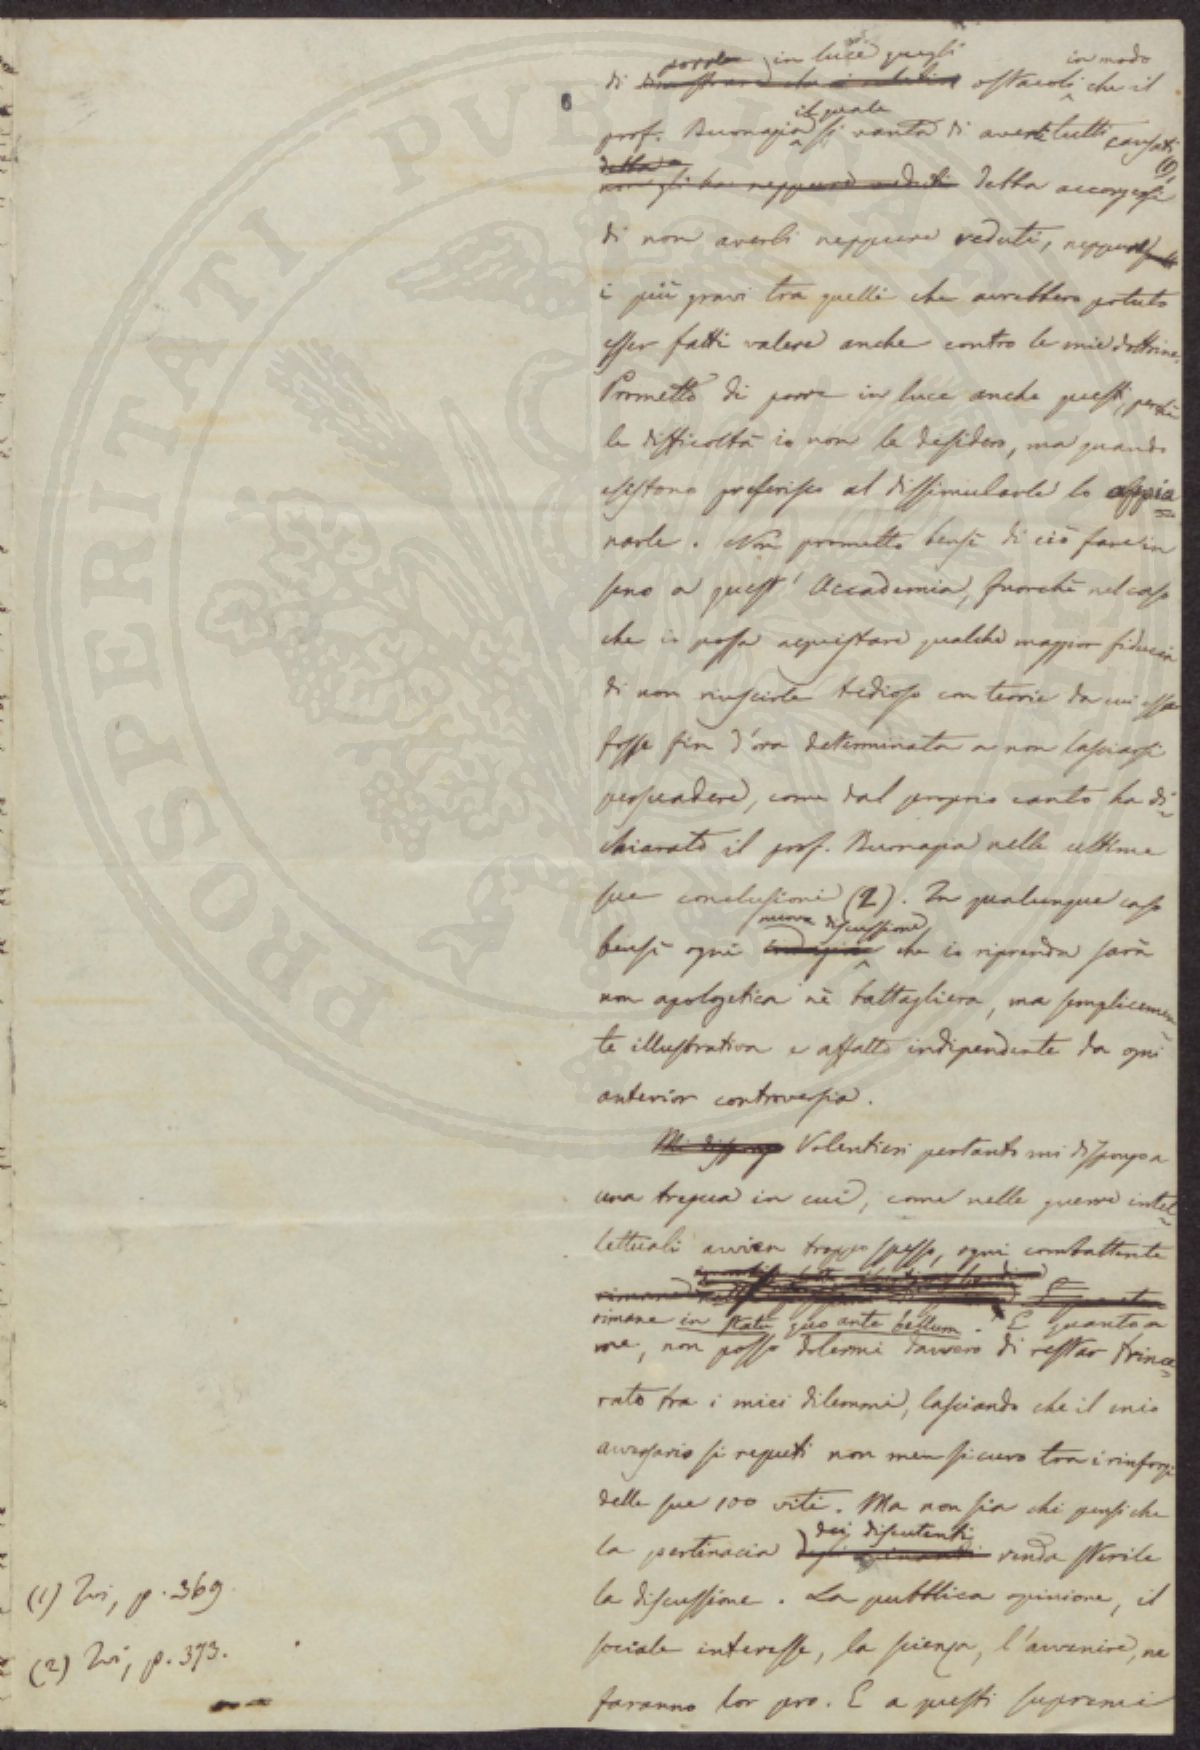 porre in luce quegli in modo
di ostacoli che il
il quale
prof. Buonapia si vanta di averli tutti causati
della
non gli ha neppure veduti debba accorgersi (1)
di non averli neppure veduti, neppure
i più gravi tra quelli che avrebbero potuto
esser fatti valere anche contro le mie dottrine.
Prometto di porre in luce anche questi, perchè
le difficoltà io non le desidero, ma quando
esistono preferisco al dissimularle lo appia
narle. Non prometto bensì di ciò fare in
seno a quest' Accademia, fuorchè nel caso
che io possa acquistare qualche maggior fiducia
di non riuscirle tedioso con teorie da cui essa
fosse fin d'ora determinata a non lasciarsi
persuadere, come dal proprio canto ha di-
chiarato il prof. Buonapia nelle ultime
sue conclusioni (2). In qualunque caso
nuova discussione
bensì ogni indagine che io riprenda sarà
non apologetica nè battagliera, ma semplicemen-
te illustrativa e affatto indipendente da ogni
anterior controversia.
Mi dispongo Volentieri pertanto mi dispongo a
una tregua in cui, come nelle guerre intel-
lettuali avvien troppo spesso, ogni combattente
rimane in statu quo ante bellum. E quanto a
me, non posso dolermi davvero di restar trince-
rato tra i miei dilemmi, lasciando che il mio
avversario si reputi non men sicuro tra i rinforzi
delle sue 100 viti. Ma non sia chi pensi che
dei discutenti
la pertinacia renda sterile
la discussione. La pubblica opinione, il
sociale interesse, la scienza, l'avvenire, ne
faranno lor pro. E a questi supremi
(1) Ivi, p. 369
(2) Ivi, p. 373.
PROSPERITATI PUBLICAE